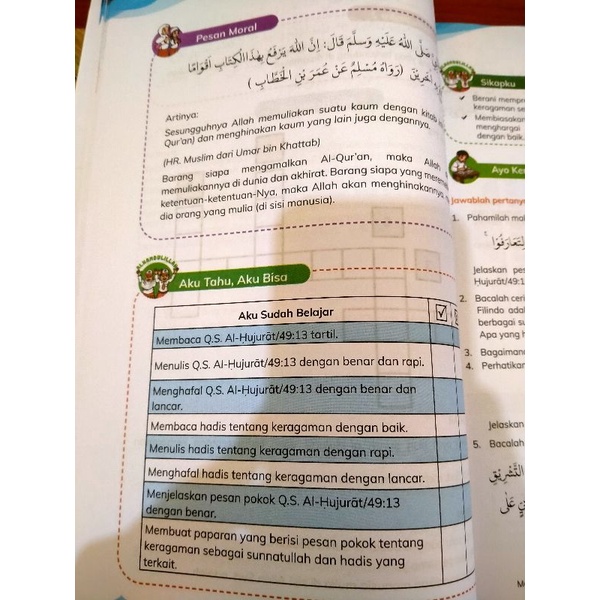 Pesan Moral
صَلَّى اللهُ عَلَيْهِ وَسَلَّمَ قَالَ: إِنَّ اللهَ يَرْفَعُ بِهٰذَا الْكِتَابِ أَقْوَامًا
(رَوَاهُ مُسْلِمٌ عَنْ عُمَرَ بْنِ الْخَطَّابِ)
Artinya:
Sesungguhnya Allah memuliakan suatu kaum dengan kitab
Qur'an) dan menghinakan kaum yang lain juga dengannya.
(HR. Muslim dari Umar bin Khattab)
Barang siapa mengamalkan Al-Qur'an, maka Allah
memuliakannya di dunia dan akhirat. Barang siapa yang
ketentuan-ketentuan-Nya, maka Allah akan menghinakannya
dia orang yang mulia (di sisi manusia).
ALHAMDULILLAH
Aku Tahu, Aku Bisa
Aku Sudah Belajar
Membaca Q.S. Al-Ḥujurāt/49:13 tartil.
Menulis Q.S. Al-Ḥujurāt/49:13 dengan benar dan rapi.
Menghafal Q.S. Al-Ḥujurāt/49:13 dengan benar dan
lancar.
Membaca hadis tentang keragaman dengan baik.
Menulis hadis tentang keragaman dengan rapi.
Menghafal hadis tentang keragaman dengan lancar.
Menjelaskan pesan pokok Q.S. Al-Ḥujurāt/49:13
dengan benar.
Membuat paparan yang berisi pesan pokok tentang
keragaman sebagai sunnatullah dan hadis yang
terkait.
Sikapku
Berani
keragaman
Membiasakan
menghargai
dengan baik.
Ayo
Jawablah
1. Pahamilah
لِتَعَارَفُوْا
Jelaskan
Ḥujurāt/49:
2. Bacalah
Filindo
berbagai
Apa yang
3.
4. Perhatikan
Jelaskan
5. Bacalah
التَّشْرِيْقِ
عَلَى